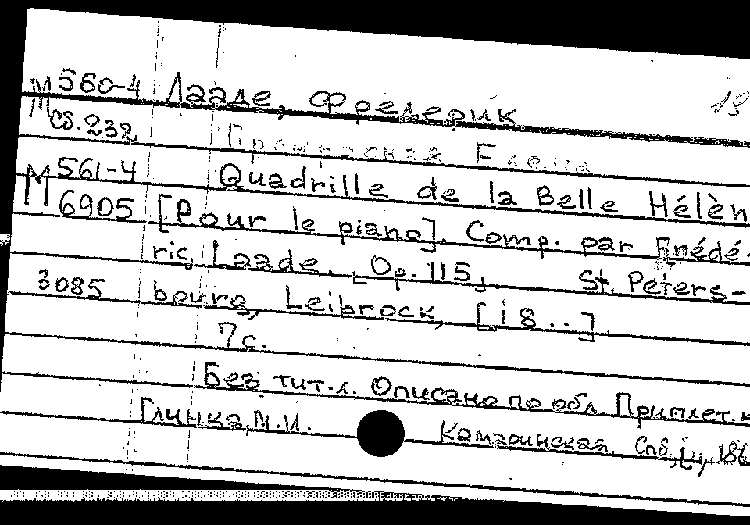 М 560-4 Лааде, Фредерик 13
Сб.232 Прекрасная Елена
М 561-4 Quadrille de la Belle Hélèn
6905 [Pour le piano]. Comp. par Frédé-
ric Laade. [Op. 115] St. Peters-
3085 bourg, Leibrock, [18..]
7 с.
Без тит. л. Описано по обл. Приплет. к
Глинка, М.И. Камаринская. Спб, 186